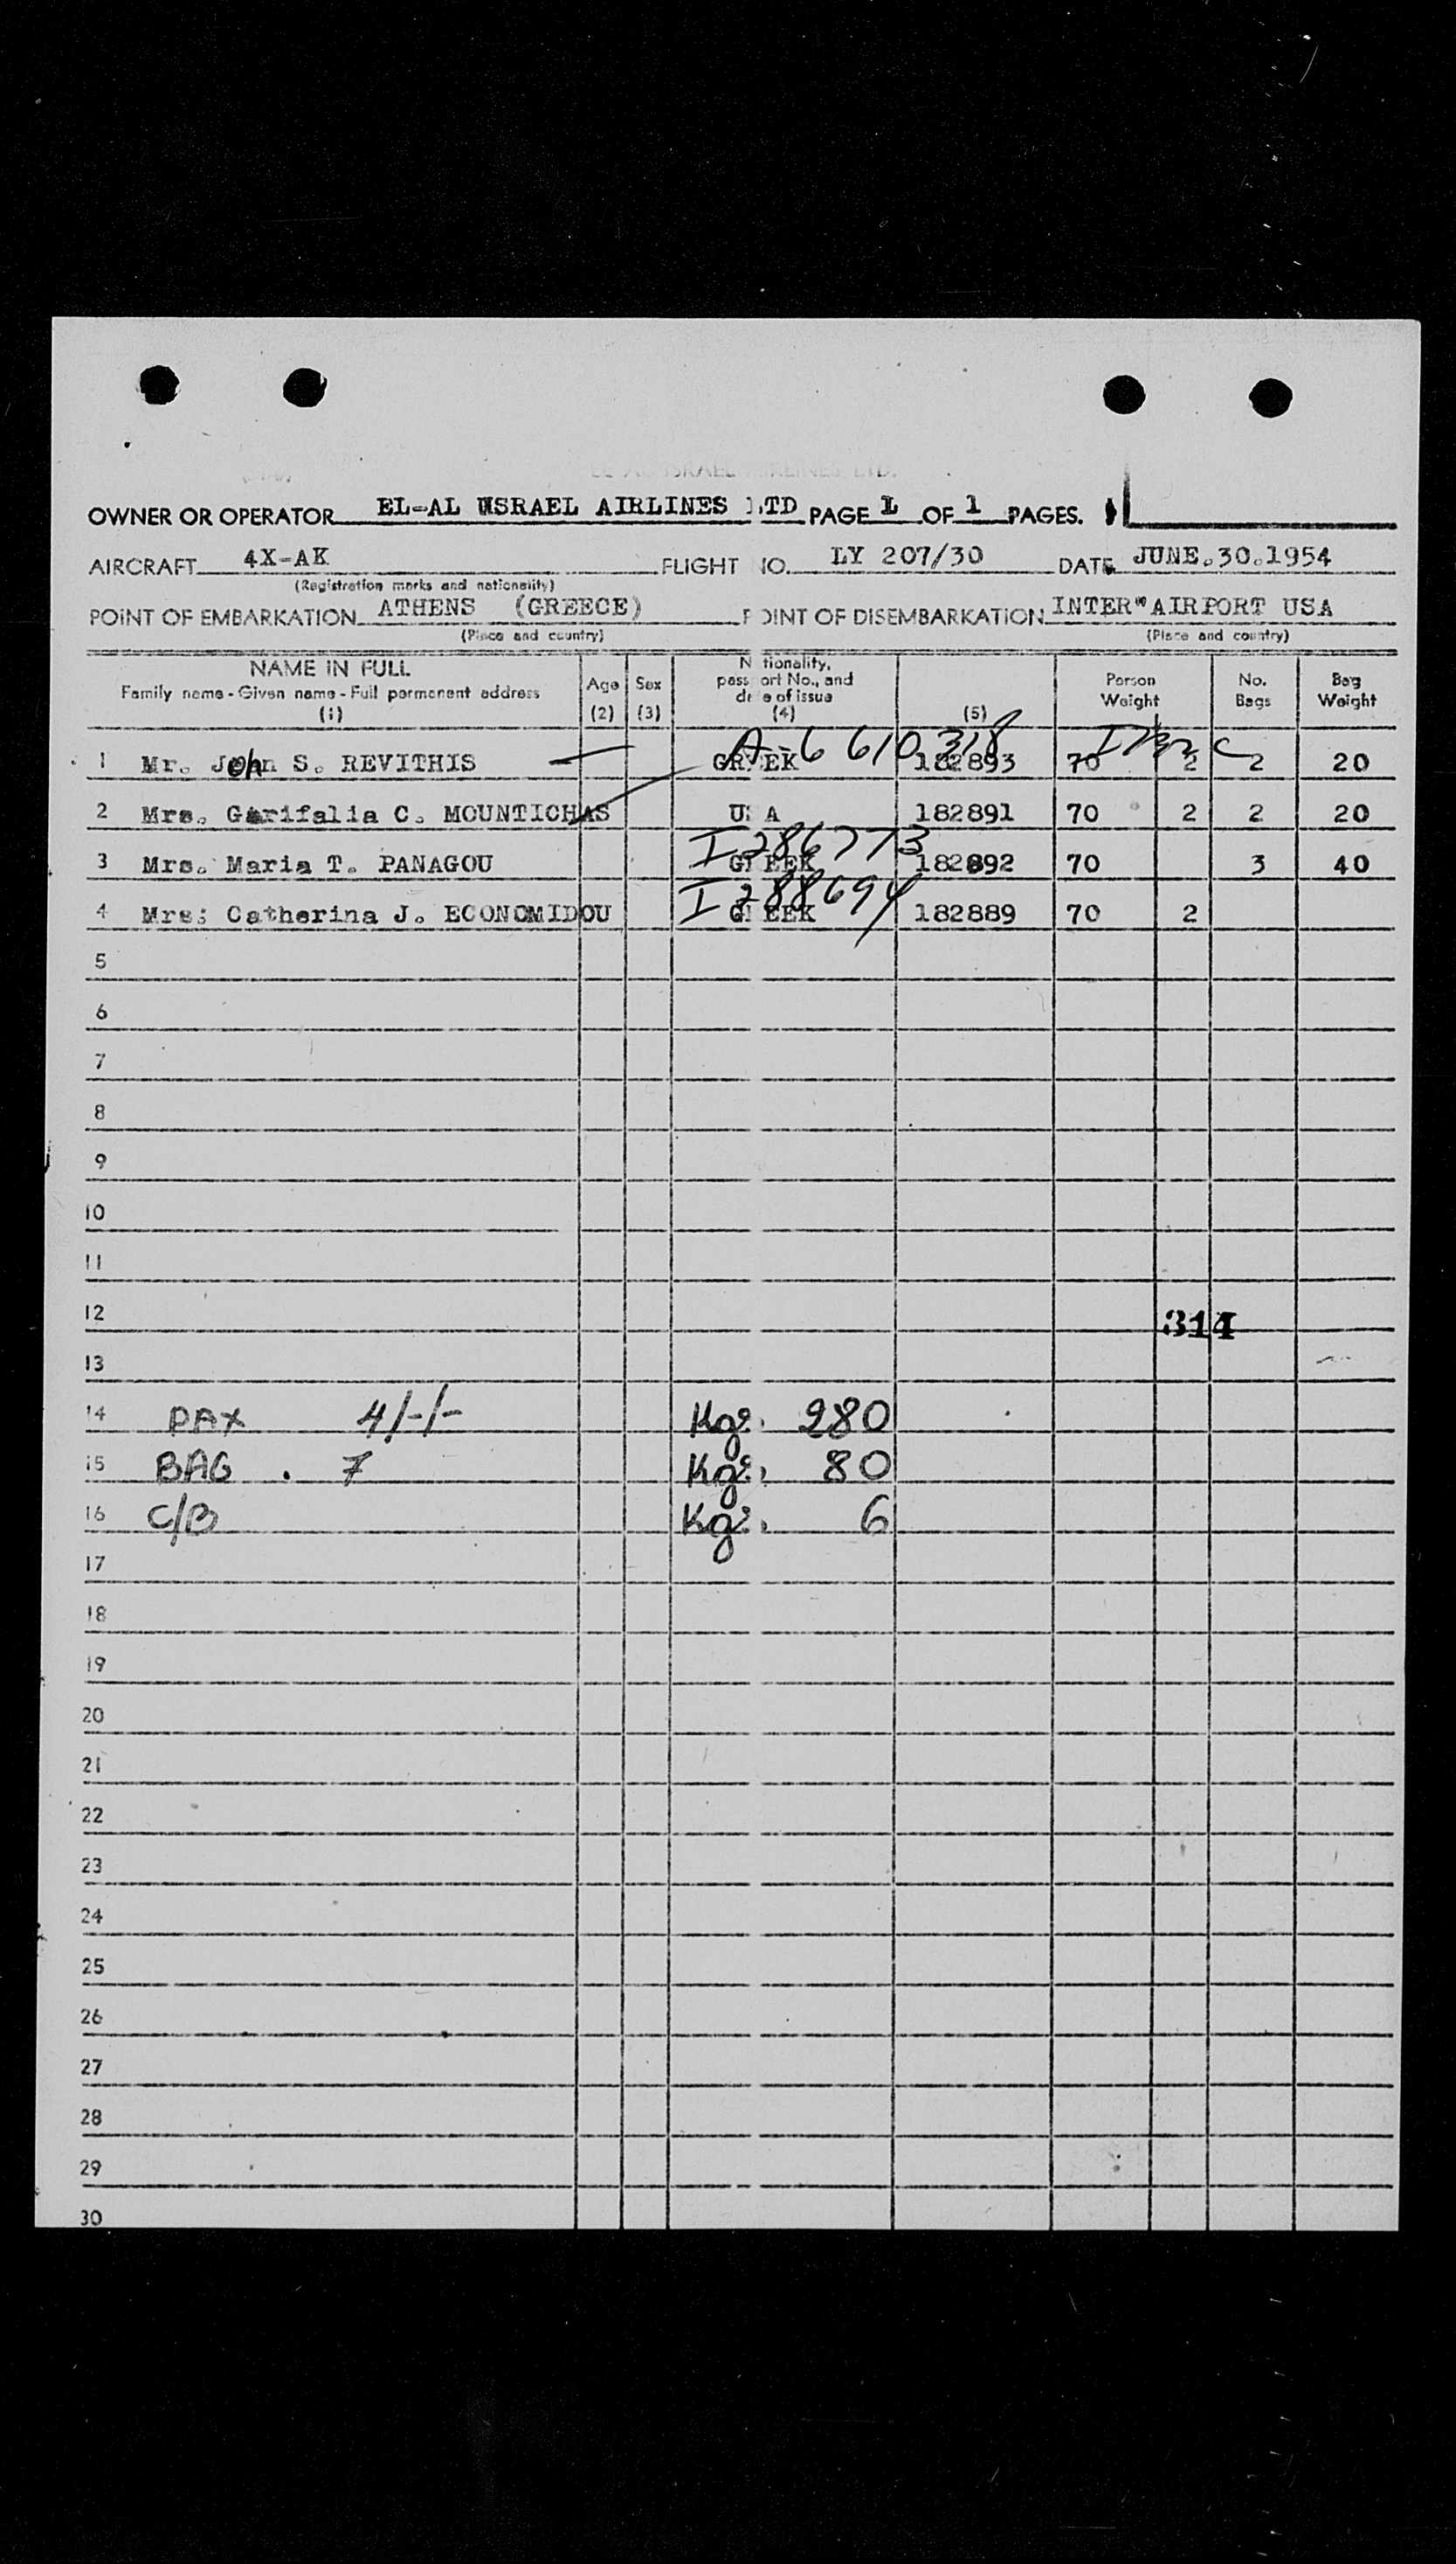 OWNER OR OPERATOR EL-AL ISRAEL AIRLINES LTD PAGE 1 OF 1 PAGES.
AIRCRAFT 4X-AK FLIGHT NO. LY 207/30 DATE JUNE.30.1954
(Registration marks and nationality)
POINT OF EMBARKATION ATHENS (GREECE) POINT OF DISEMBARKATION INTER"AIRPORT USA
(Place and country) (Place and country)
NAME IN FULL Family name - Given name - Full permanent address (1) Age (2) Sex (3) Nationality, passport No., and date of issue (4) (5) Person Weight No. Bags Bag Weight
A-6 610 318
1 Mr. John S. REVITHIS GREEK 182893 70 2 2 20
2 Mrs. Garifalia C. MOUNTICHAS USA 182891 70 2 2 20
I 286773
3 Mrs. Maria T. PANAGOU GREEK 182892 70 3 40
I 288694
4 Mrs; Catherina J. ECONOMIDOU GREEK 182889 70 2
5
6
7
8
9
10
11
12 314
13
14 PAX 4/-/- Kgs. 280
15 BAG . 7 Kgs. 80
16 C/B Kgs. 6
17
18
19
20
21
22
23
24
25
26
27
28
29
30